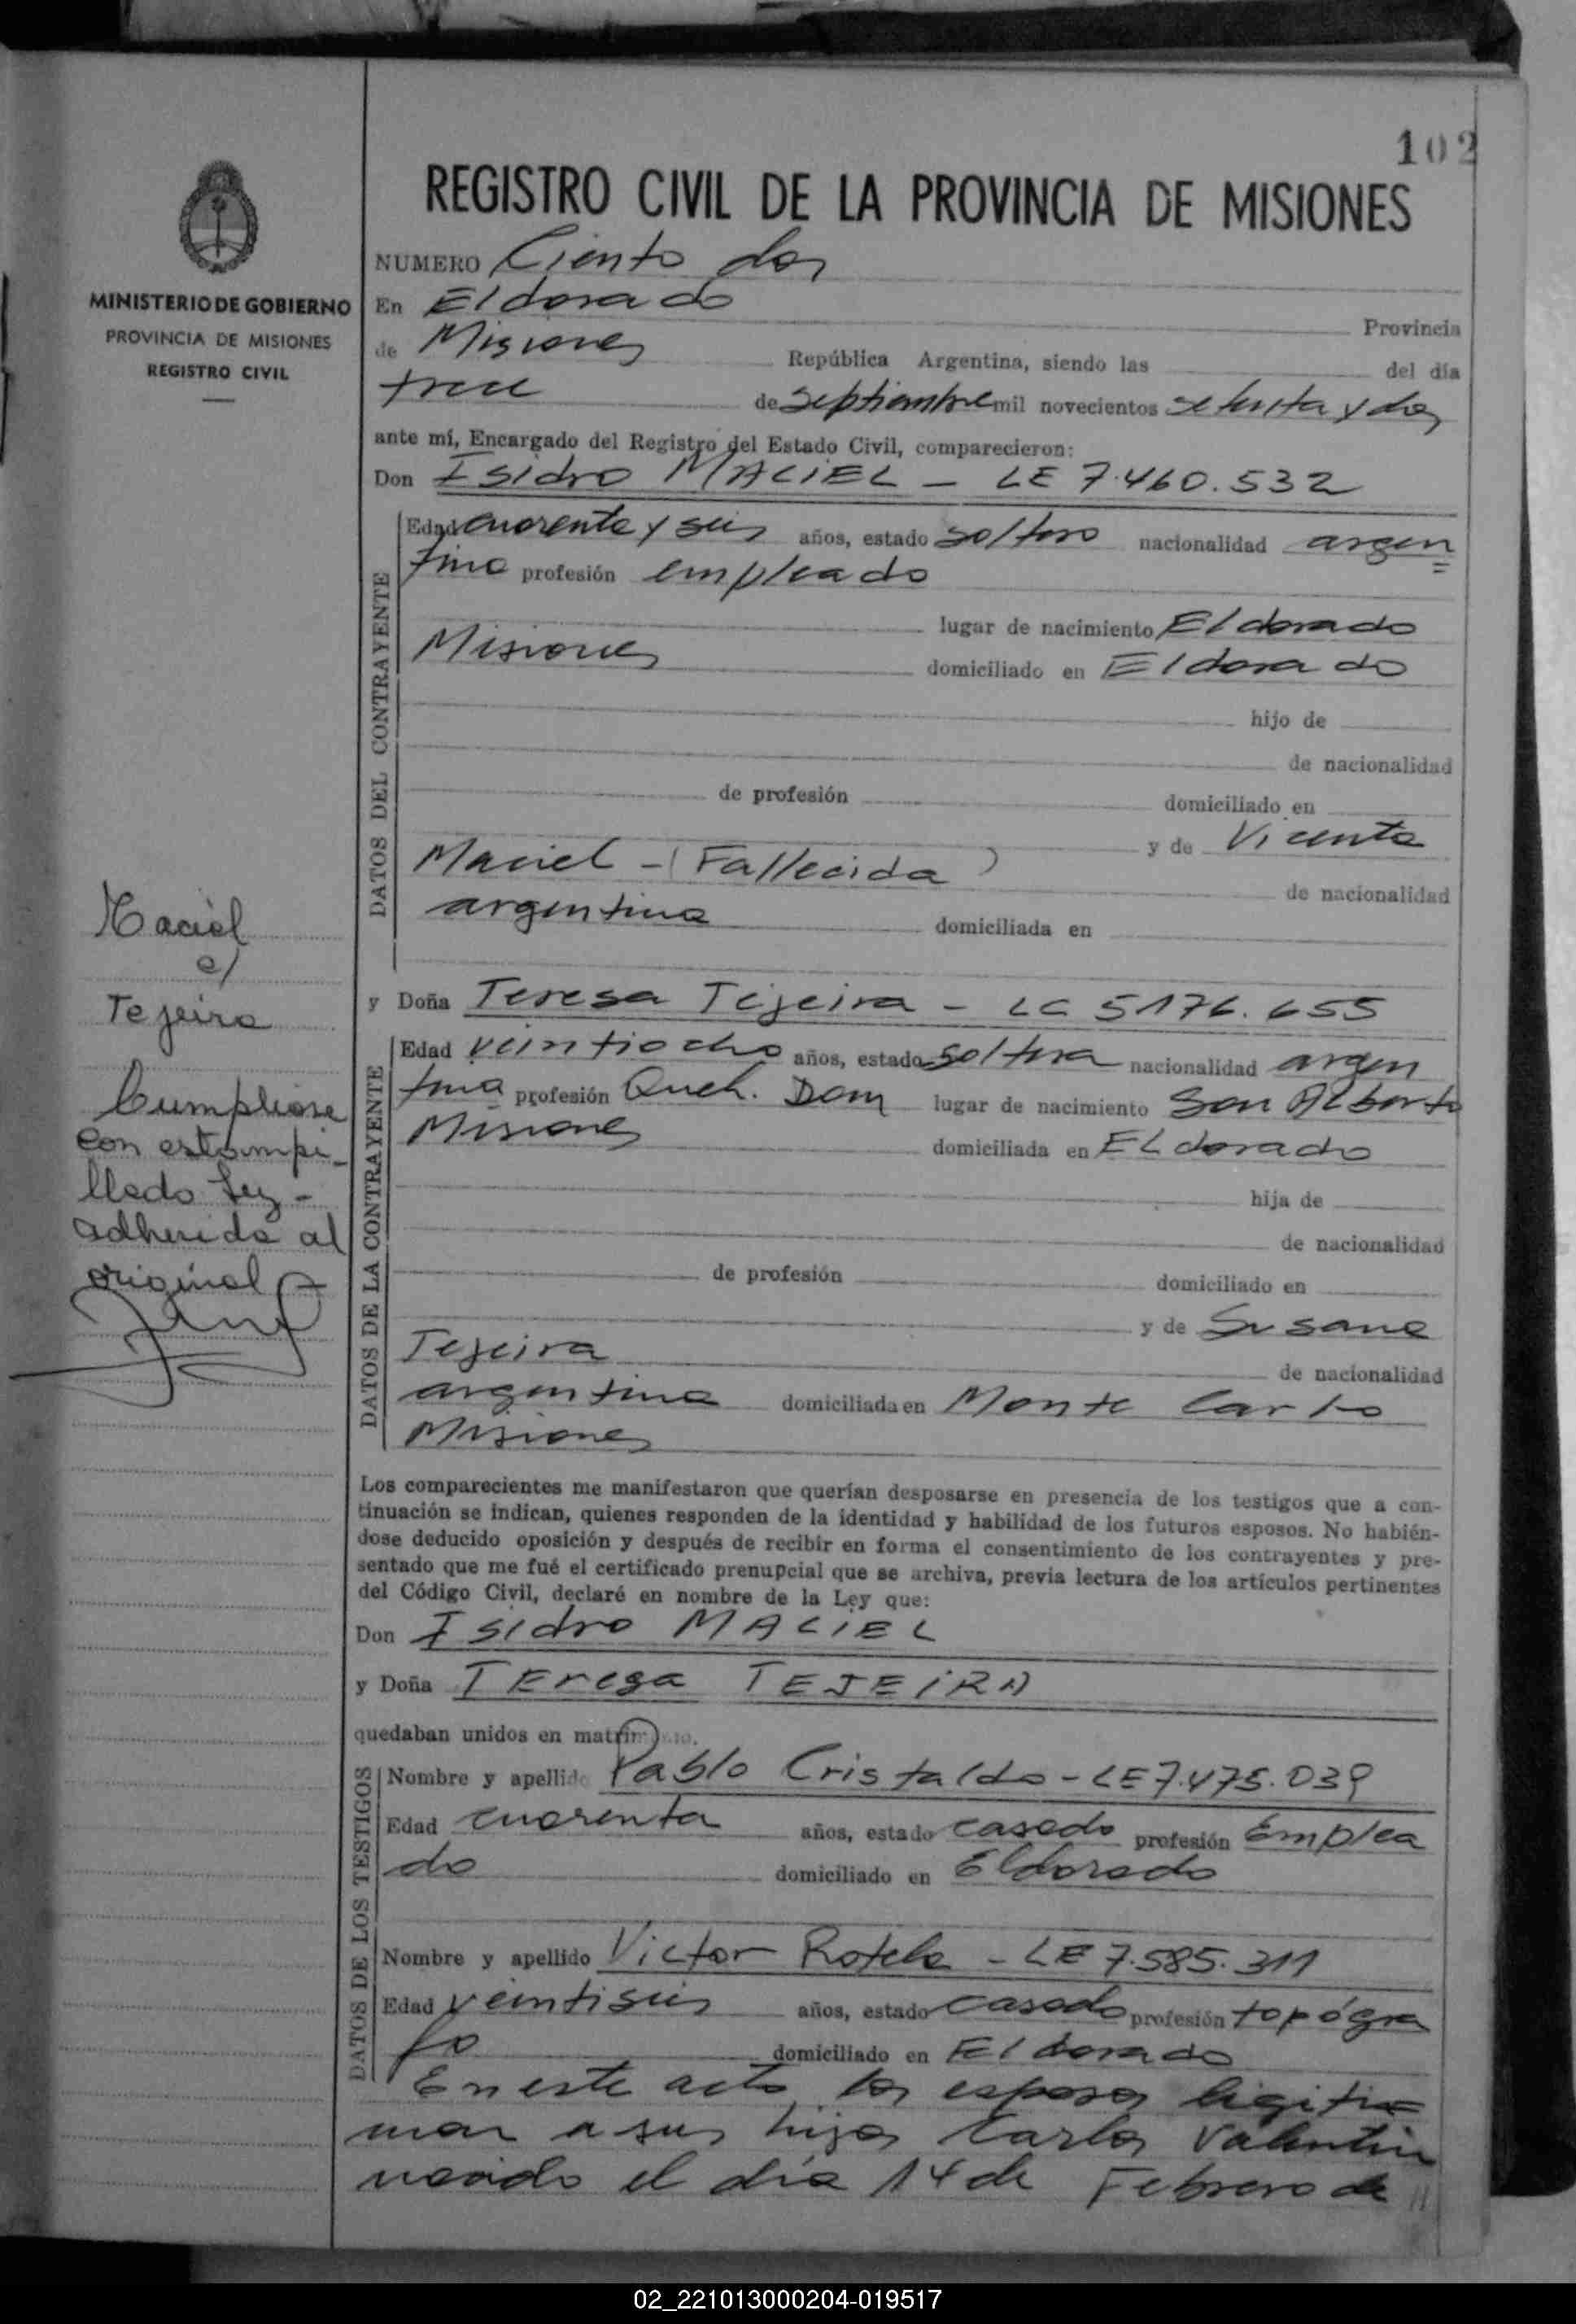 102
REGISTRO CIVIL DE LA PROVINCIA DE MISIONES
MINISTERIO DE GOBIERNO
PROVINCIA DE MISIONES
REGISTRO CIVIL
NUMERO Ciento dos
En Eldorado Provincia
de Misiones República Argentina, siendo las del día
trece de septiembre mil novecientos setenta y dos
ante mí, Encargado del Registro del Estado Civil, comparecieron:
Don Isidro MACIEL - LE 7.460.532
DATOS DEL CONTRAYENTE
Edad cuarenta y seis años, estado soltero nacionalidad argen=
tino profesión empleado
lugar de nacimiento Eldorado
Misiones domiciliado en Eldorado
hijo de
de nacionalidad
de profesión domiciliado en
y de Vicenta
Maciel - (Fallecida) de nacionalidad
argentina domiciliada en
Maciel
c/
Tejeira
Cumpliose
con estampi-
llado Ley -
adherida al
original
y Doña Teresa Tejeira - LC 5176.655
DATOS DE LA CONTRAYENTE
Edad veintiocho años, estado soltera nacionalidad argen
tina profesión Queh. Dom lugar de nacimiento San Alberto
Misiones domiciliada en ELdorado
hija de
de nacionalidad
de profesión domiciliado en
y de Susana
Tejeira de nacionalidad
argentina domiciliada en Monte Carlo
Misiones
Los comparecientes me manifestaron que querían desposarse en presencia de los testigos que a con-
tinuación se indican, quienes responden de la identidad y habilidad de los futuros esposos. No habién-
dose deducido oposición y después de recibir en forma el consentimiento de los contrayentes y pre-
sentado que me fué el certificado prenupcial que se archiva, previa lectura de los artículos pertinentes
del Código Civil, declaré en nombre de la Ley que:
Don Isidro MACIEL
y Doña TEresa TEJEIRA
quedaban unidos en matrimonio.
DATOS DE LOS TESTIGOS
Nombre y apellido Pablo Cristaldo - LE 7.475.039
Edad cuarenta años, estado casado profesión Emplea
do domiciliado en Eldorado
Nombre y apellido Victor Rotela - LE 7.585.311
Edad veintiseis años, estado casado profesión topógra
fo domiciliado en Eldorado
En este acto los esposos legiti=
man a sus hijos Carlos Valentin
nacido el día 14 de Febrero de //
02_221013000204-019517